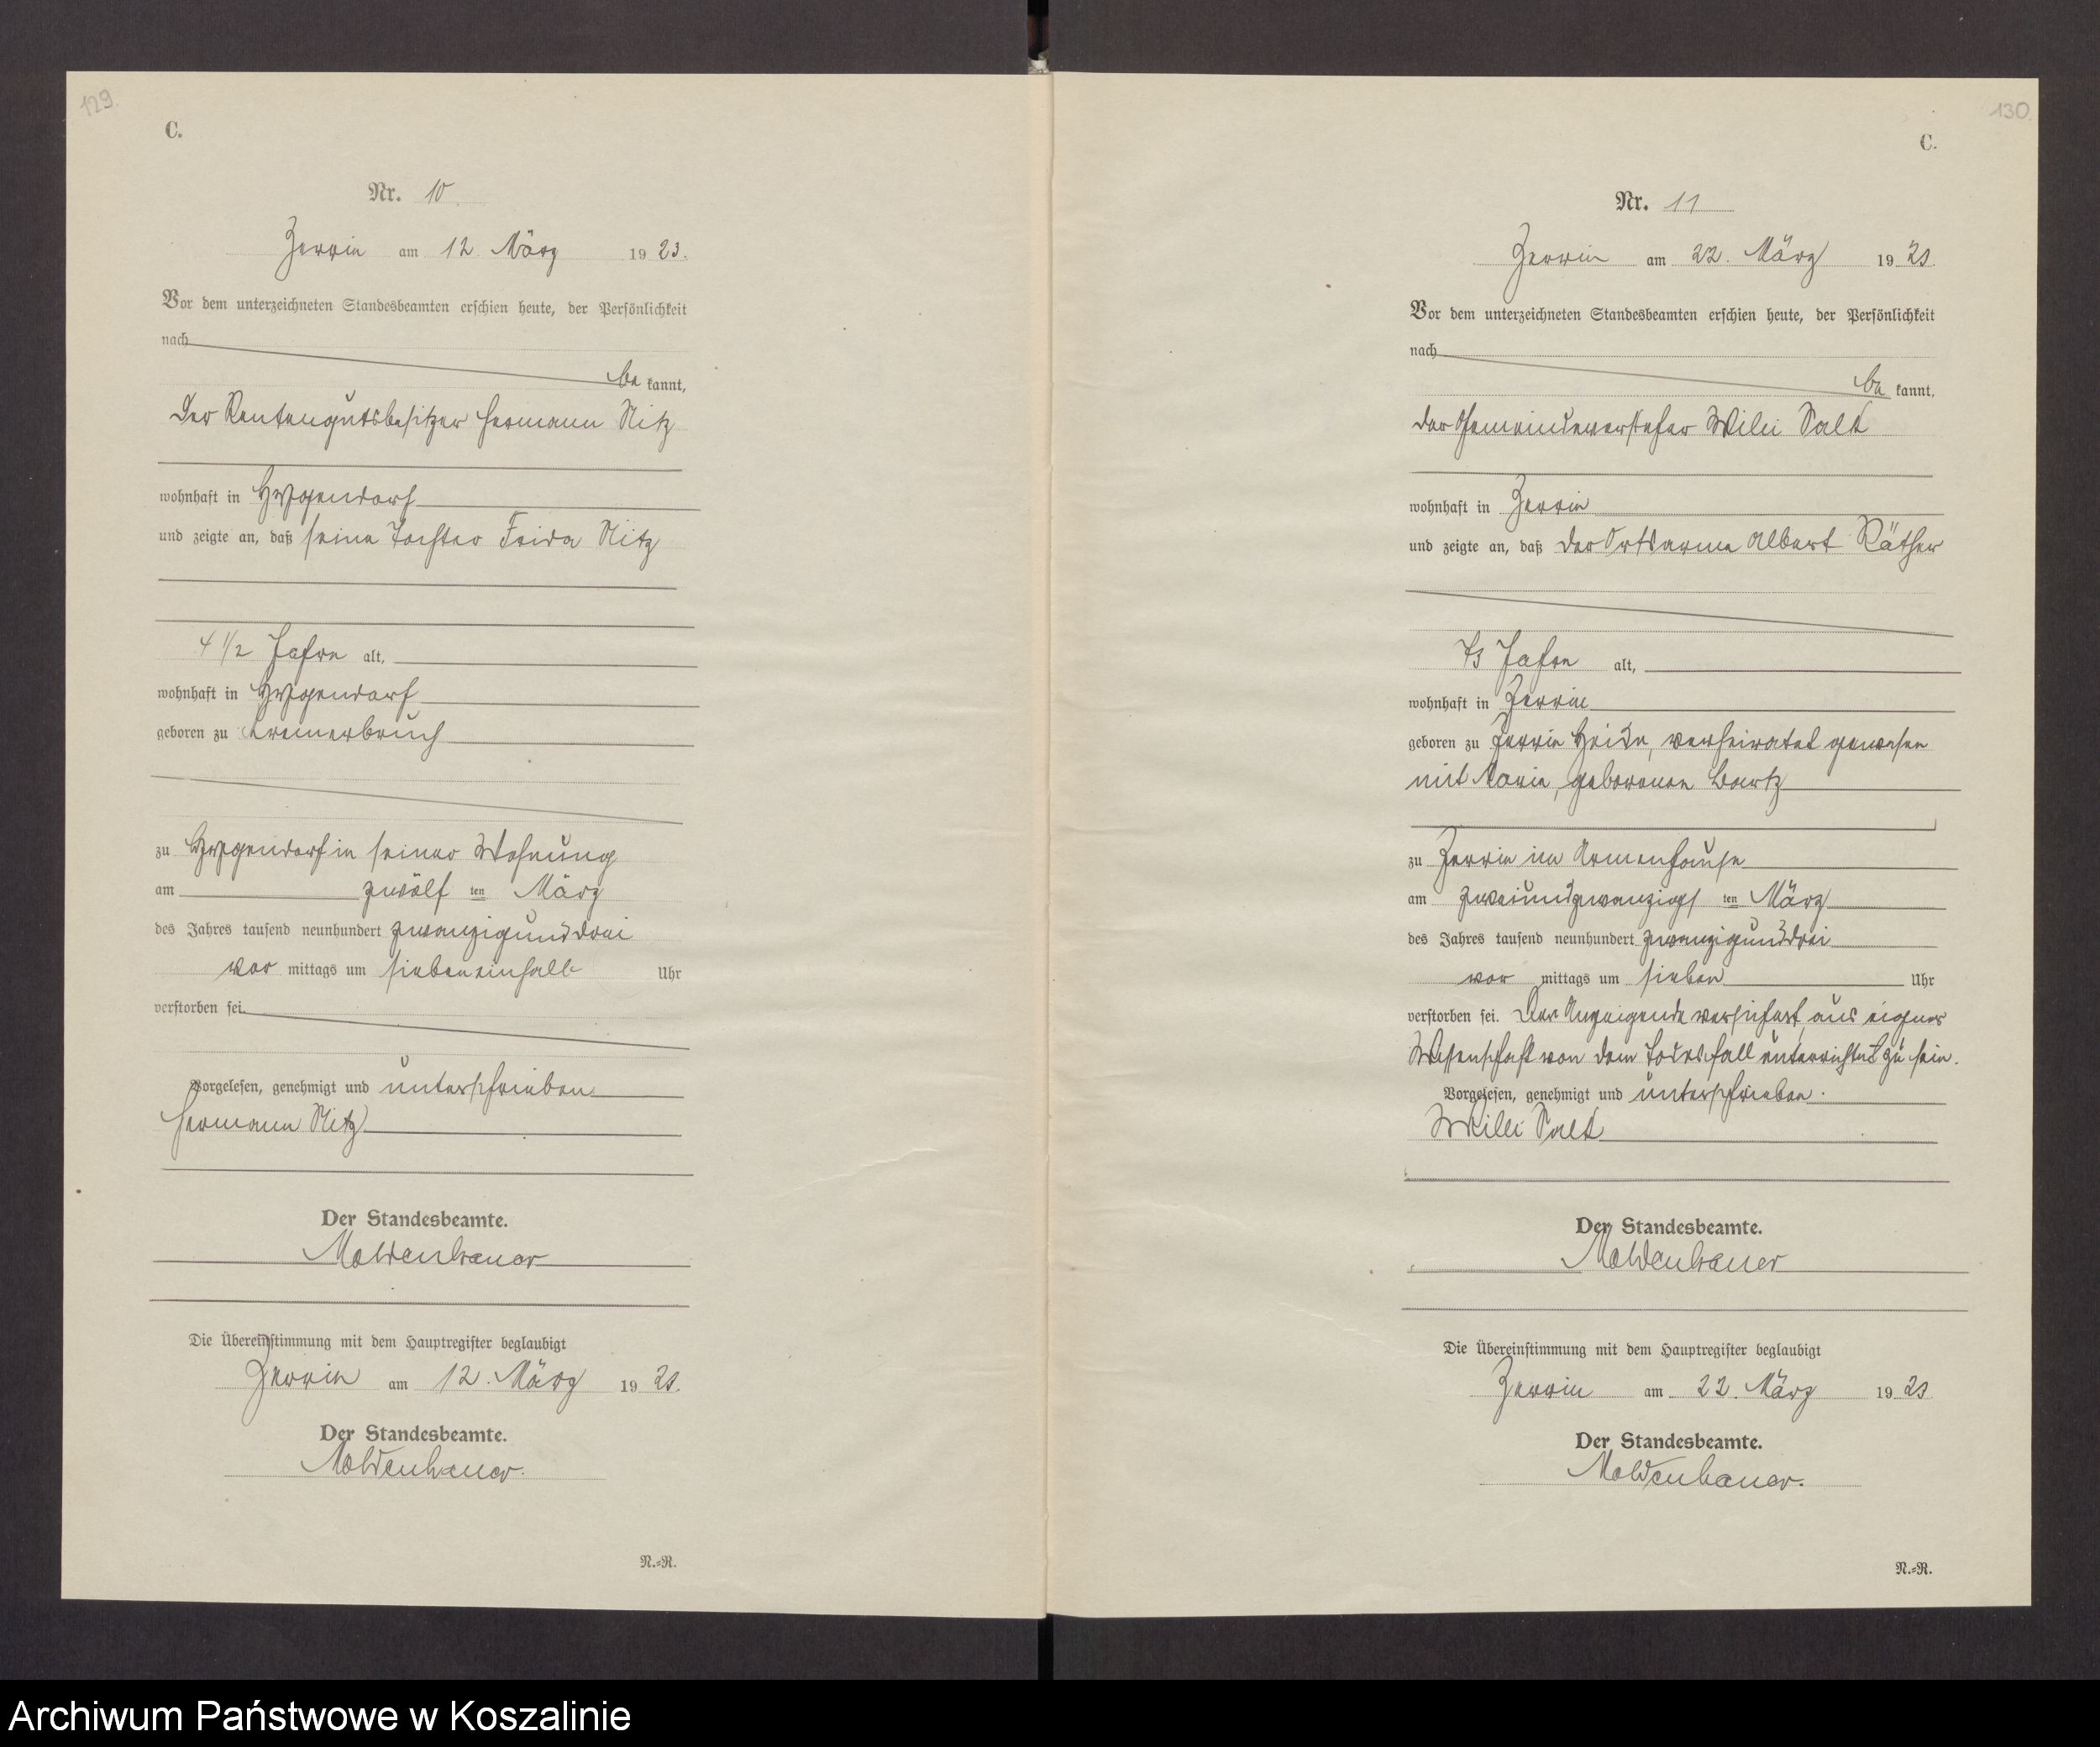 129.
C.
Nr. 10.
Zerrin am 12. März 1923.
Vor dem unterzeichneten Standesbeamten erschien heute, der Persönlichkeit
nach
be kannt,
Der Rentengutsbesitzer Hermann Nitz
wohnhaft in
und zeigte an, daß seine Tochter Frida Nitz
4 1/2 Jahre alt,
wohnhaft in
geboren zu Kremerbruch
zu in seiner Wohnung
am zwölf ten März
des Jahres tausend neunhundert zwanzigunddrei
vor mittags um siebeneinhalb Uhr
verstorben sei.
Vorgelesen, genehmigt und unterschrieben.
Hermann Nitz
Der Standesbeamte.
Moldenhauer
Die Übereinstimmung mit dem Hauptregister beglaubigt
Zerrin am 12. März 1923.
Der Standesbeamte.
Moldenhauer.
N.=R.
130.
C.
Nr. 11
Zerrin am 22. März 1923.
Vor dem unterzeichneten Standesbeamten erschien heute, der Persönlichkeit
nach
be kannt,
der Gemeindevorsteher Willi
wohnhaft in Zerrin
und zeigte an, daß der Ortsarme Albert Räther
73 Jahre alt,
wohnhaft in Zerrin
geboren zu Zerrin Heide, verheiratet gewesen
mit Marie, geborenen Bartz
zu Zerrin im Armenhause
am zweiundzwanzigs ten März
des Jahres tausend neunhundert zwanzigunddrei
vor mittags um sieben Uhr
verstorben sei. Der Anzeigende versichert, aus eigner
Wissenschaft von dem Todesfall unterrichtet zu sein.
Vorgelesen, genehmigt und unterschrieben.
Willi
Der Standesbeamte.
Moldenhauer
Die Übereinstimmung mit dem Hauptregister beglaubigt
Zerrin am 22. März 1923
Der Standesbeamte.
Moldenhauer.
N.=R.
Archiwum Państwowe w Koszalinie